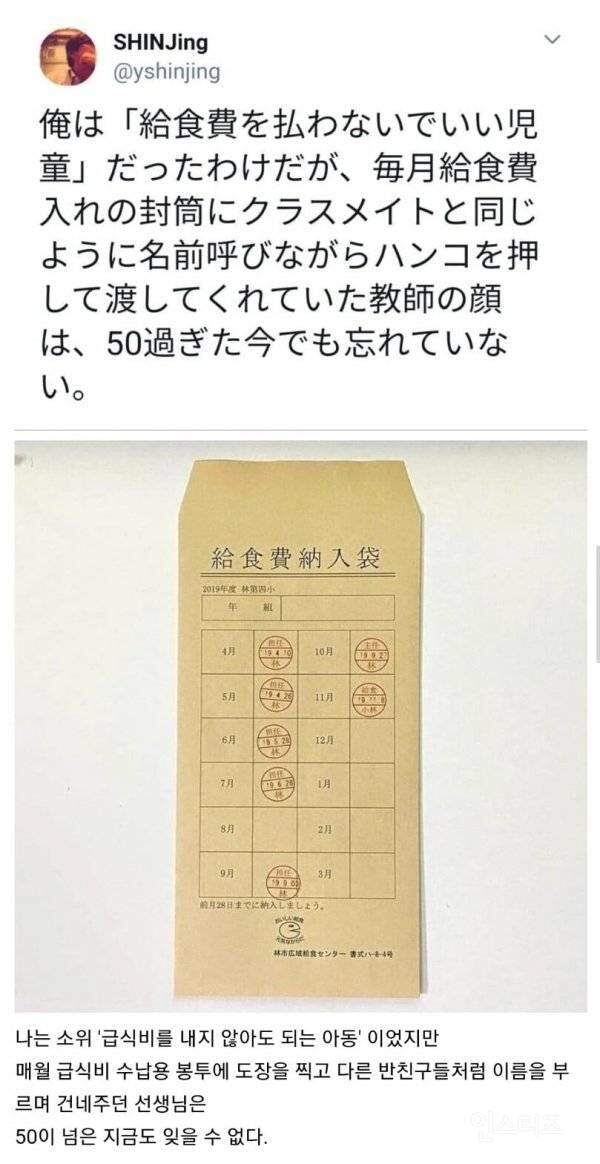 SHINJing
@yshinjing
俺は「給食費を払わないでいい児
童」だったわけだが、毎月給食費
入れの封筒にクラスメイトと同じ
ように名前呼びながらハンコを押
して渡してくれていた教師の顔
は、50過ぎた今でも忘れていな
い。
給食費納入袋
2019年度 林第四小
年 組
4月 担任 19.4.10 林 10月 主任 19.9.27 林
5月 担任 19.4.26 林 11月 給食 19.11.8 小林
6月 担任 19.5.28 林 12月
7月 担任 19.6.28 林 1月
8月 2月
9月 担任 19.9.03 林 3月
前月28日までに納入しましょう。
おいしい給食
元気なからだ
林市広域給食センター 書式ハ-8-4号
나는 소위 '급식비를 내지 않아도 되는 아동' 이었지만
매월 급식비 수납용 봉투에 도장을 찍고 다른 반친구들처럼 이름을 부
르며 건네주던 선생님은
50이 넘은 지금도 잊을 수 없다.
인스티즈